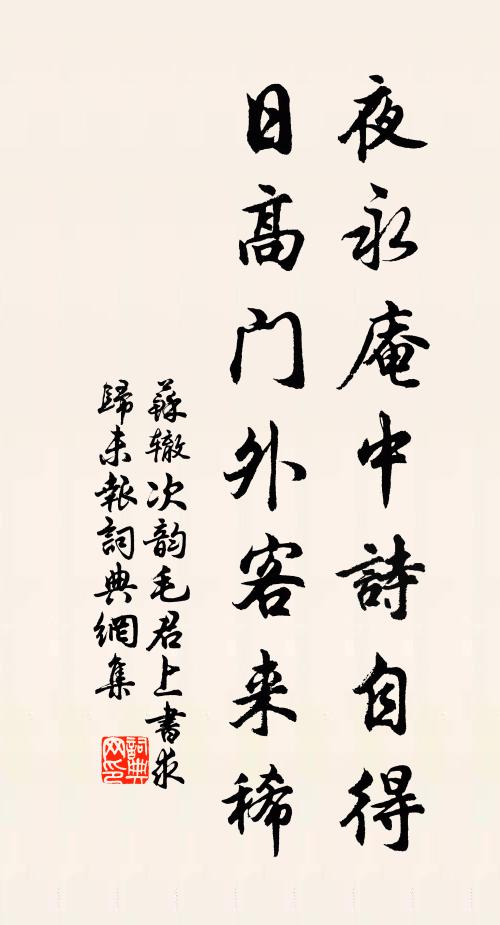 夜永庵中詩自得
日高门外客来稀
蘇辙次韵毛君上書求
歸未報詞典網集
詞典
网印